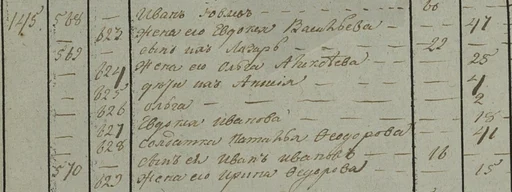 145. 568 — Иванъ Іовлевъ — 60
— 623 — жена его Евдокія Васильева — — 47
569 — сынъ ихъ Лазарь — 29
— 624 — жена его Ольга Аникѣева — — 25
— 625 — дѣти ихъ Анисія — — 4
— 626 — Ольга — — 2
— 627 Евдокія Иванова — — 18
— 628 — Солдатка Наталья Ѳеодорова — — 41
570 — сынъ ея Иванъ Ивановъ — 16
— 629 — жена его Ирина Ѳедорова — — 15